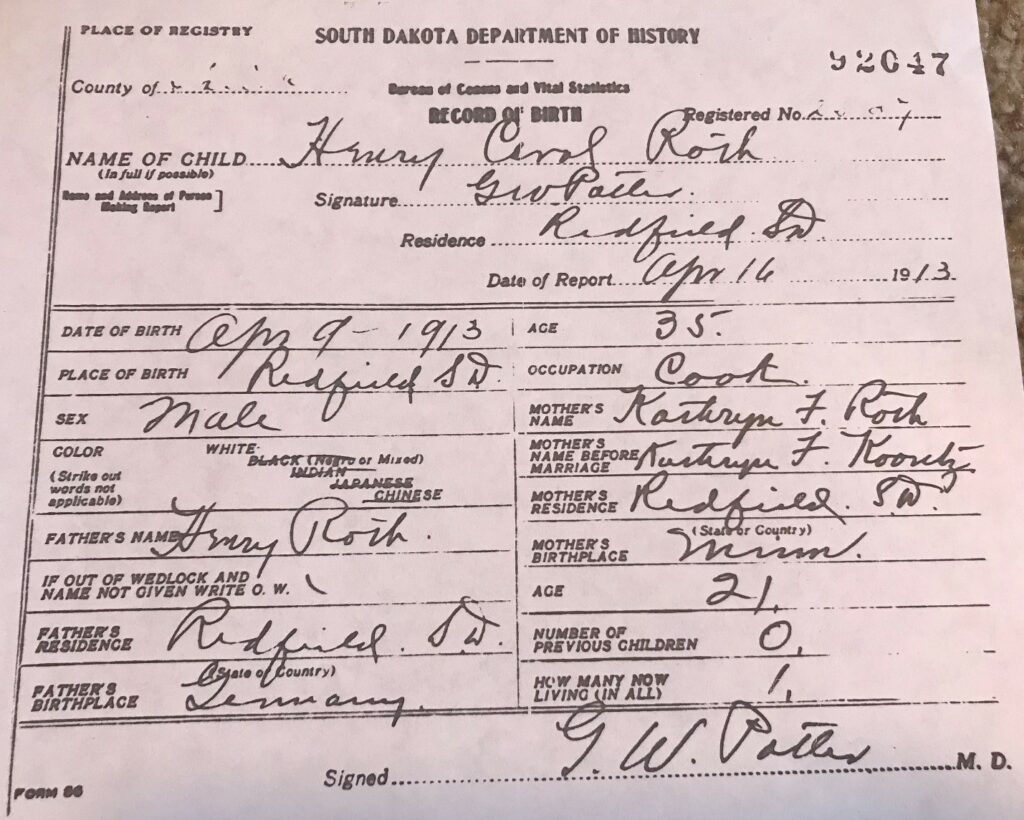 PLACE OF REGISTRY
SOUTH DAKOTA DEPARTMENT OF HISTORY
92647
County of
Bureau of Census and Vital Statistics
RECORD OF BIRTH
Registered No.
NAME OF CHILD Henry Carol Roth
(In full if possible)
Name and Address of Person Making Report ]
Signature G W Potter
Residence Redfield S.D.
Date of Report Apr 16 1913
DATE OF BIRTH Apr 9 - 1913
AGE 35.
PLACE OF BIRTH Redfield S.D.
OCCUPATION Cook.
SEX Male
MOTHER'S NAME Kathryn F. Roth
COLOR
(Strike out words not applicable)
WHITE
BLACK (Negro or Mixed)
INDIAN
JAPANESE
CHINESE
MOTHER'S NAME BEFORE MARRIAGE Kathryn F.
MOTHER'S RESIDENCE Redfield. S.D.
FATHER'S NAME Henry Roth.
(State or Country)
MOTHER'S BIRTHPLACE Minn.
IF OUT OF WEDLOCK AND NAME NOT GIVEN WRITE O. W.
AGE 21.
FATHER'S RESIDENCE Redfield. S.D.
NUMBER OF PREVIOUS CHILDREN 0.
(State or Country)
FATHER'S BIRTHPLACE Germany.
HOW MANY NOW LIVING (IN ALL) 1.
Signed G. W. Potter M. D.
FORM 86